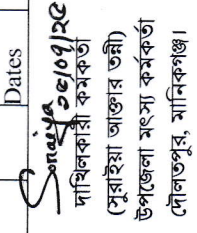 Dates
Soraiya
১৫/০৭/২৫
দাখিলকারী কর্মকর্তা
(সুরাইয়া আক্তার তন্নী)
উপজেলা মৎস্য কর্মকর্তা
দৌলতপুর, মানিকগঞ্জ।